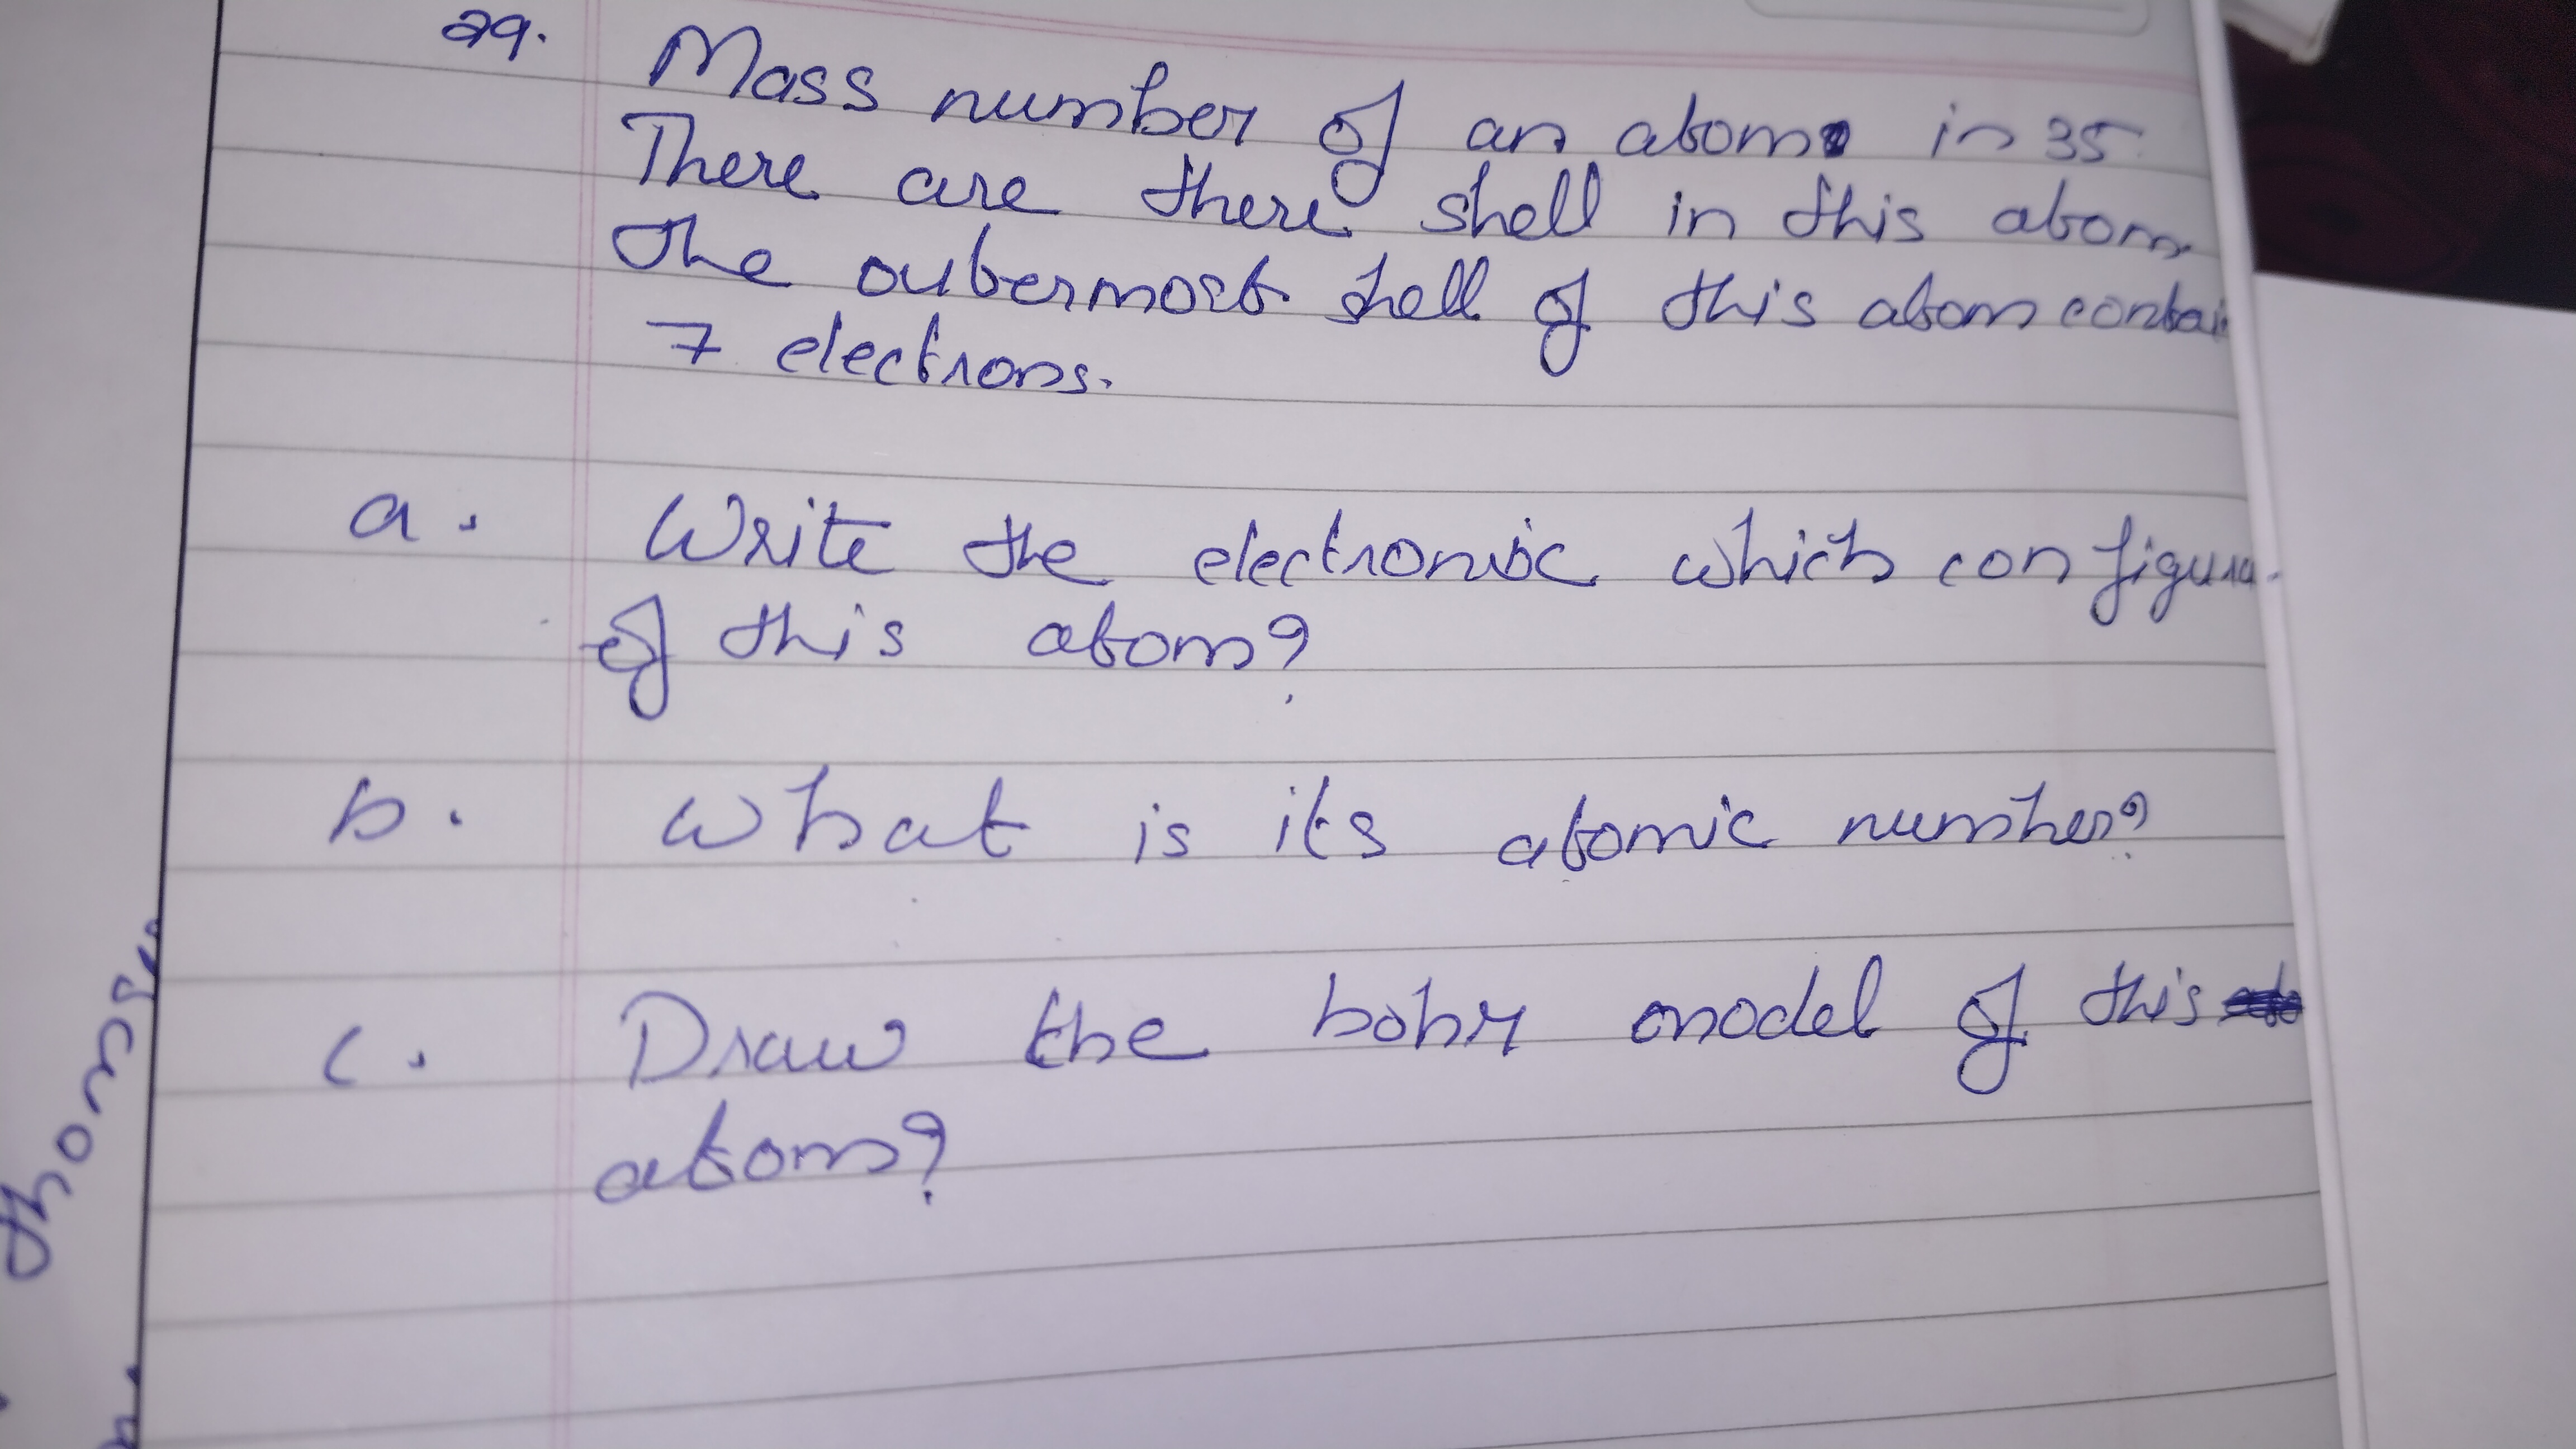 29.
Mass number of an atom in 35
There are there shell in this atom
The outermost shell of this atom contai
7 electrons.
a. Write the electronic which configura
of this atom?
b. What is its atomic number?
c. Draw the bohr model of this
atom?